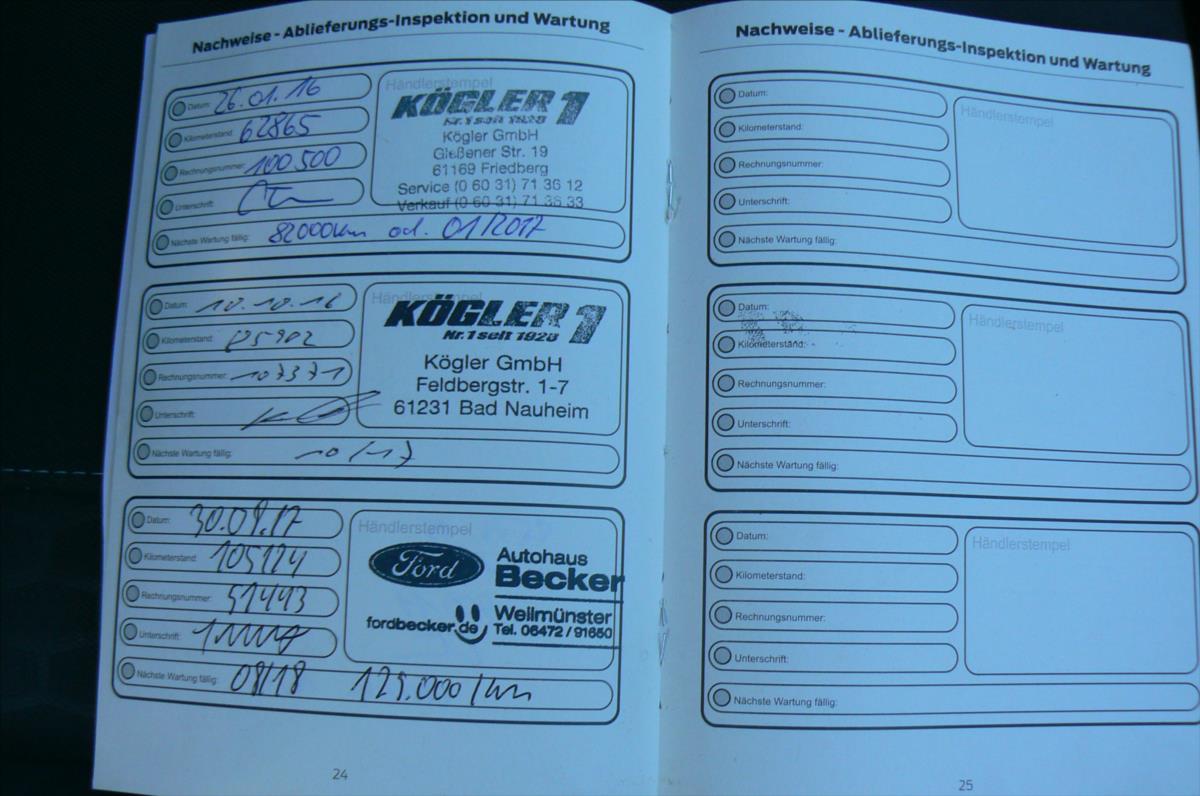 Nachweise - Ablieferungs-Inspektion und Wartung
Datum: 26.01.16
Kilometerstand: 62865
Rechnungsnummer: 100500
Unterschrift:
Nächste Wartung fällig: 82000km od. 01/2017
Händlerstempel
KÖGLER 1
Nr. 1 seit 1928
Kögler GmbH
Gießener Str. 19
61169 Friedberg
Service (0 60 31) 71 36 12
Verkauf (0 60 31) 71 36 33
Datum: 10.10.16
Kilometerstand:
Rechnungsnummer: 107371
Unterschrift:
Nächste Wartung fällig: 10/17
Händlerstempel
KÖGLER 1
Nr. 1 seit 1928
Kögler GmbH
Feldbergstr. 1-7
61231 Bad Nauheim
Datum:
Kilometerstand: 105124
Rechnungsnummer: 51443
Unterschrift:
Nächste Wartung fällig: 08/18 125.000/km
Händlerstempel
Ford
Autohaus
Becker
fordbecker.de
Weilmünster
Tel. 06472 / 91650
24
Nachweise - Ablieferungs-Inspektion und Wartung
Datum:
Kilometerstand:
Rechnungsnummer:
Unterschrift:
Nächste Wartung fällig:
Händlerstempel
Datum:
Kilometerstand:
Rechnungsnummer:
Unterschrift:
Nächste Wartung fällig:
Händlerstempel
Datum:
Kilometerstand:
Rechnungsnummer:
Unterschrift:
Nächste Wartung fällig:
Händlerstempel
25